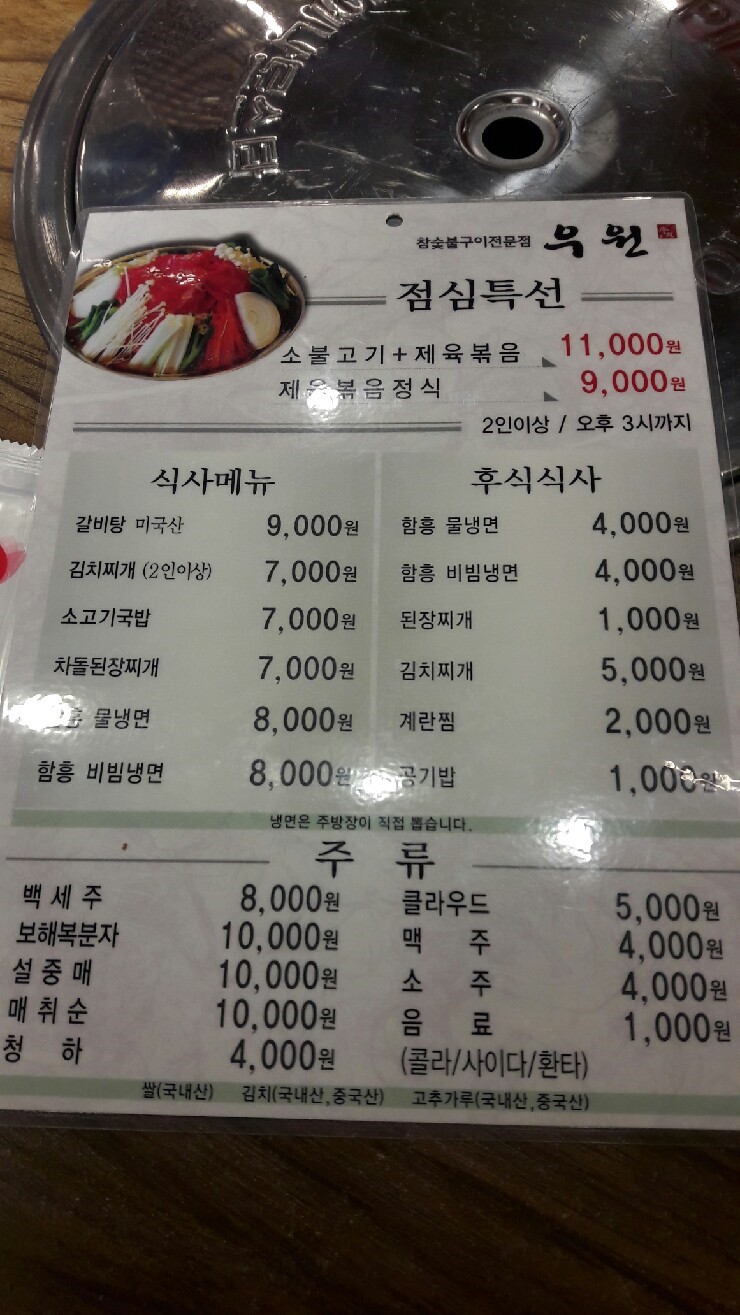 참숯불구이전문점 우원
점심특선
소불고기+제육볶음 11,000원
제육볶음정식 9,000원
2인이상 / 오후 3시까지
식사메뉴
갈비탕 미국산 9,000원
김치찌개 (2인이상) 7,000원
소고기국밥 7,000원
차돌된장찌개 7,000원
함흥 물냉면 8,000원
함흥 비빔냉면 8,000원
후식식사
함흥 물냉면 4,000원
함흥 비빔냉면 4,000원
된장찌개 1,000원
김치찌개 5,000원
계란찜 2,000원
공기밥 1,000원
냉면은 주방장이 직접 뽑습니다.
주 류
백세주 8,000원
보해복분자 10,000원
설중매 10,000원
매취순 10,000원
청 하 4,000원
클라우드 5,000원
맥 주 4,000원
소 주 4,000원
음 료 1,000원
(콜라/사이다/환타)
쌀(국내산) 김치(국내산,중국산) 고추가루(국내산,중국산)